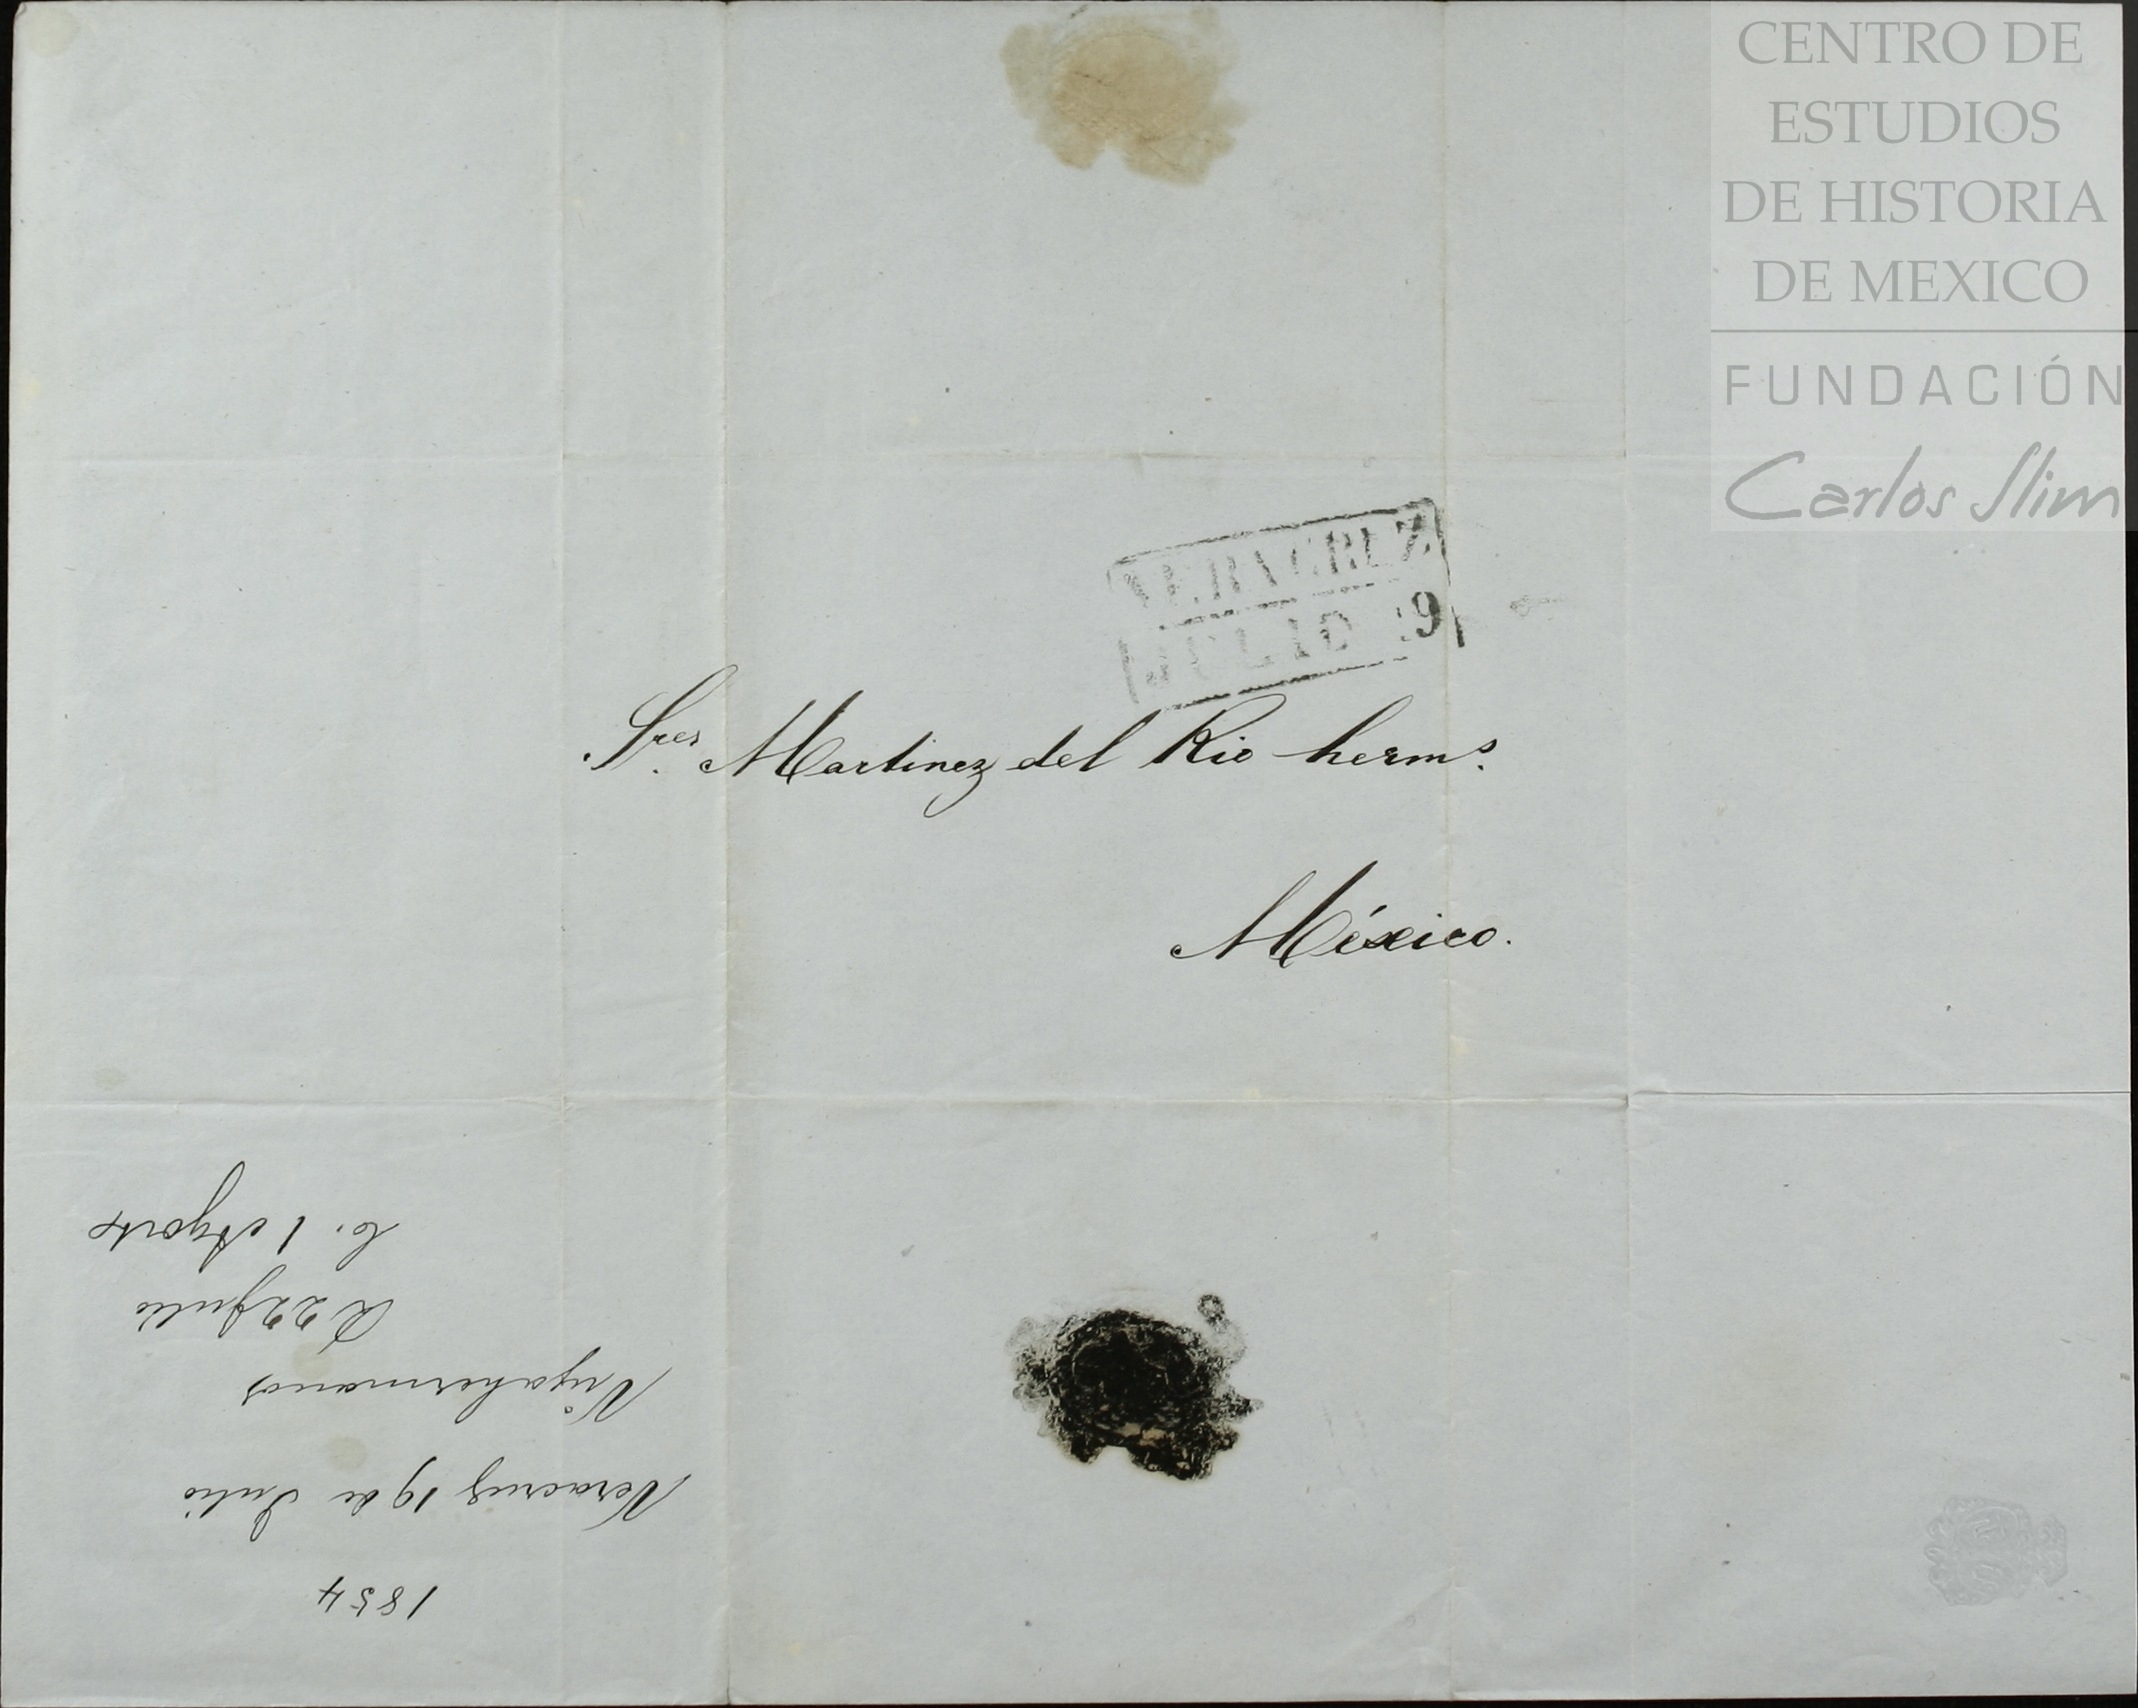 CENTRO DE
ESTUDIOS
DE HISTORIA
DE MEXICO
FUNDACIÓN
Carlos Slim
VERACRUZ
JULIO 19
Sres. Martinez del Rio herms.
México.
1854
Veracruz 19 de Julio
Viya hermanos
R 22 Julio
C. 1 Agosto